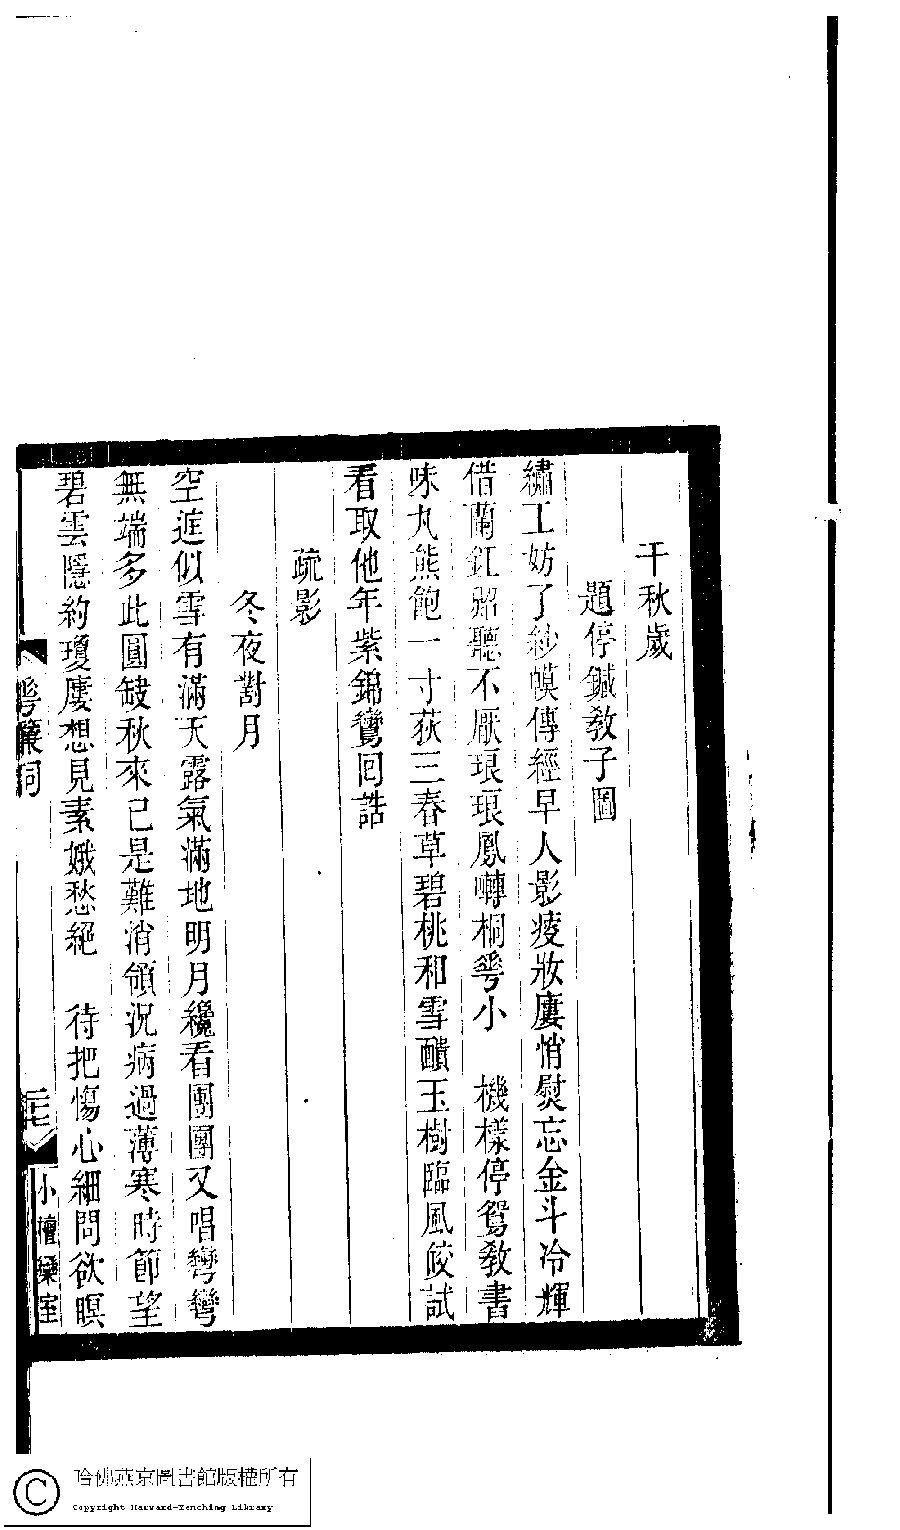 千秋歲
題停鍼敎子圖
繡工妨了紗幙傳經早人影痠妝廔悄熨忘金斗冷輝
借蘭釭炤聽不厭琅琅鳳囀桐蕚小　機樣停鴛敎書
味丸熊飽一寸荻三春草碧桃和雪醺玉樹臨風皎試
看取他年紫錦鸞回誥
疏影
冬夜對月
空庭似雪有滿天露氣滿地明月纔看團團又唱彎彎
無端多此圓缺秋來已是難消領況病過薄寒時節望
碧雲隱約瓊廔想見素娥愁絕　待把傷心細問欲瞑
花簾詞
三七
小檀欒室
哈佛燕京圖書館版權所有
Copyright Harvard-Yenching Library